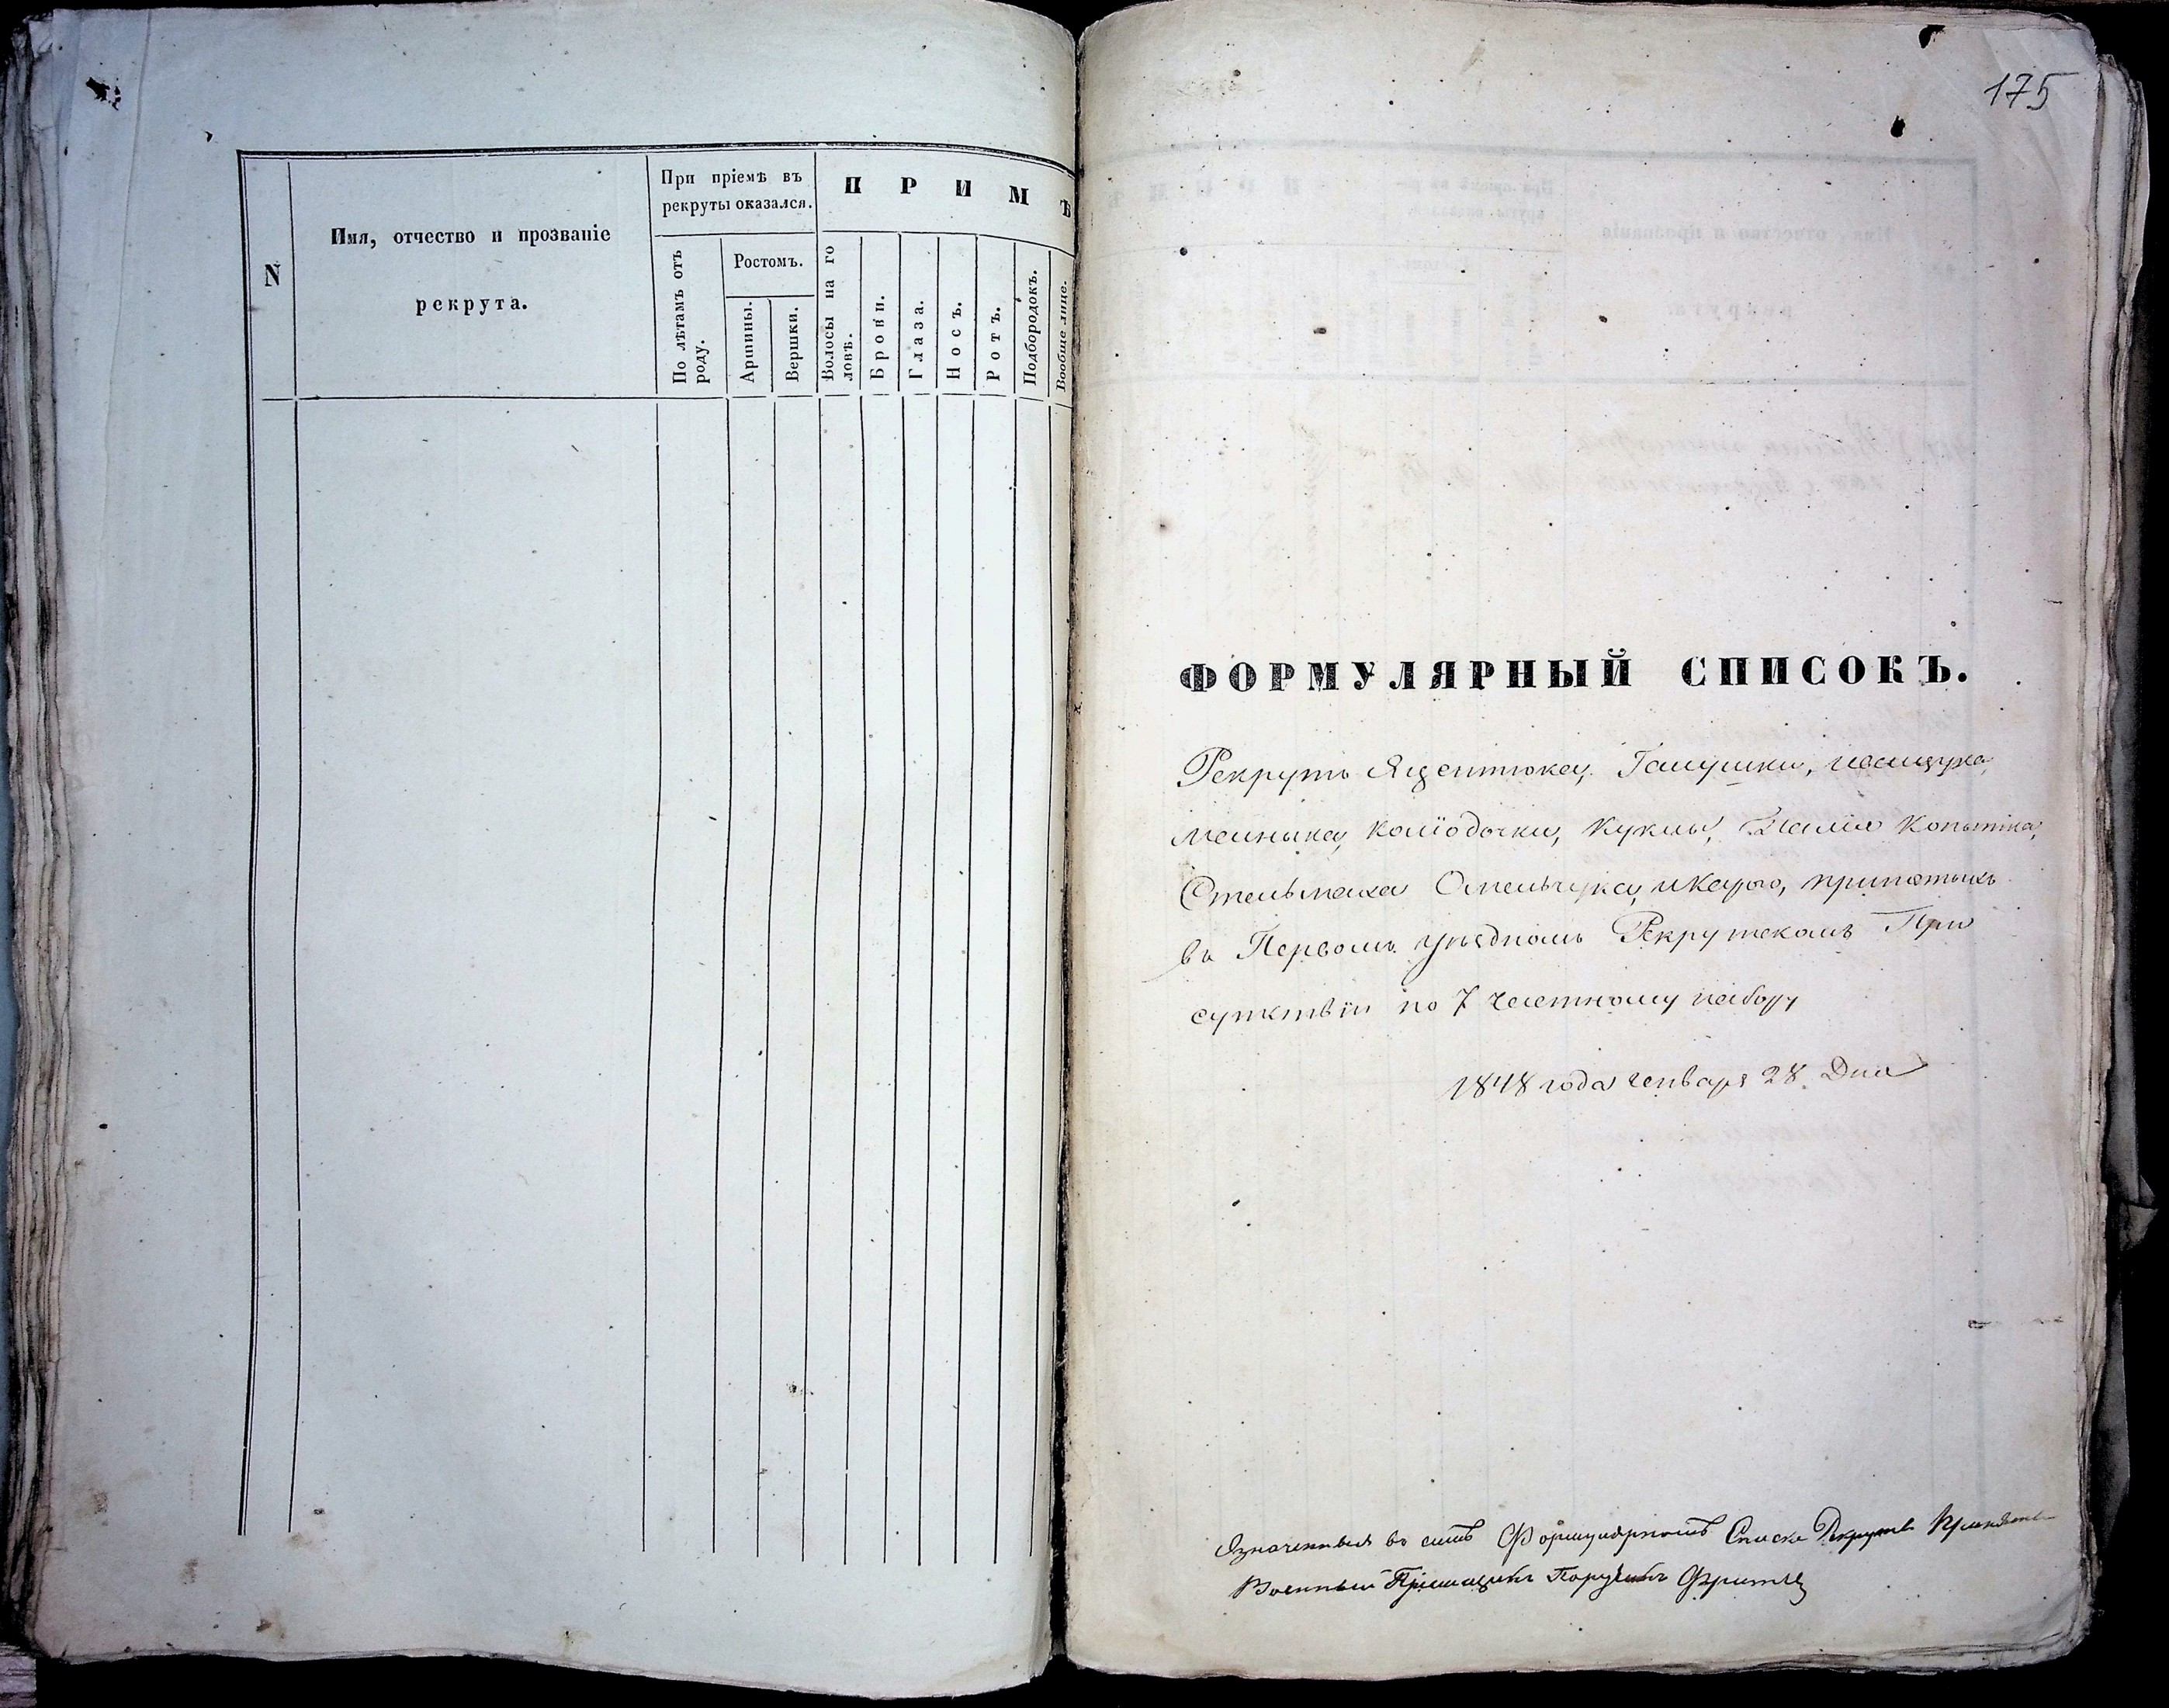 N
Имя, отчество и прозваніе
рекрута.
При пріемѣ въ
рекруты оказался.
По лѣтамъ отъ
роду.
Ростомъ.
Аршины.
Вершки.
П Р И М Ѣ
Волосы на го
ловѣ.
Брови.
Глаза.
Носъ.
Ротъ.
Подбородокъ.
Вообще лице.
175
ФОРМУЛЯРНЫЙ СПИСОКЪ.
Рекрутъ Яцентюка, Галушки,
Мельныка, Колїодочки, Куклы, Копытка,
Стельмаха Омельчука, принятыхъ
въ Первомъ уѣздномъ Рекрутскомъ При
сутствїи по 7 частному набору
1848 года генваря 28 Дня
Означенныя въ семъ Формулярномъ Списке Рекрутъ Принялъ
Военный Пріемщикъ Поручикъ